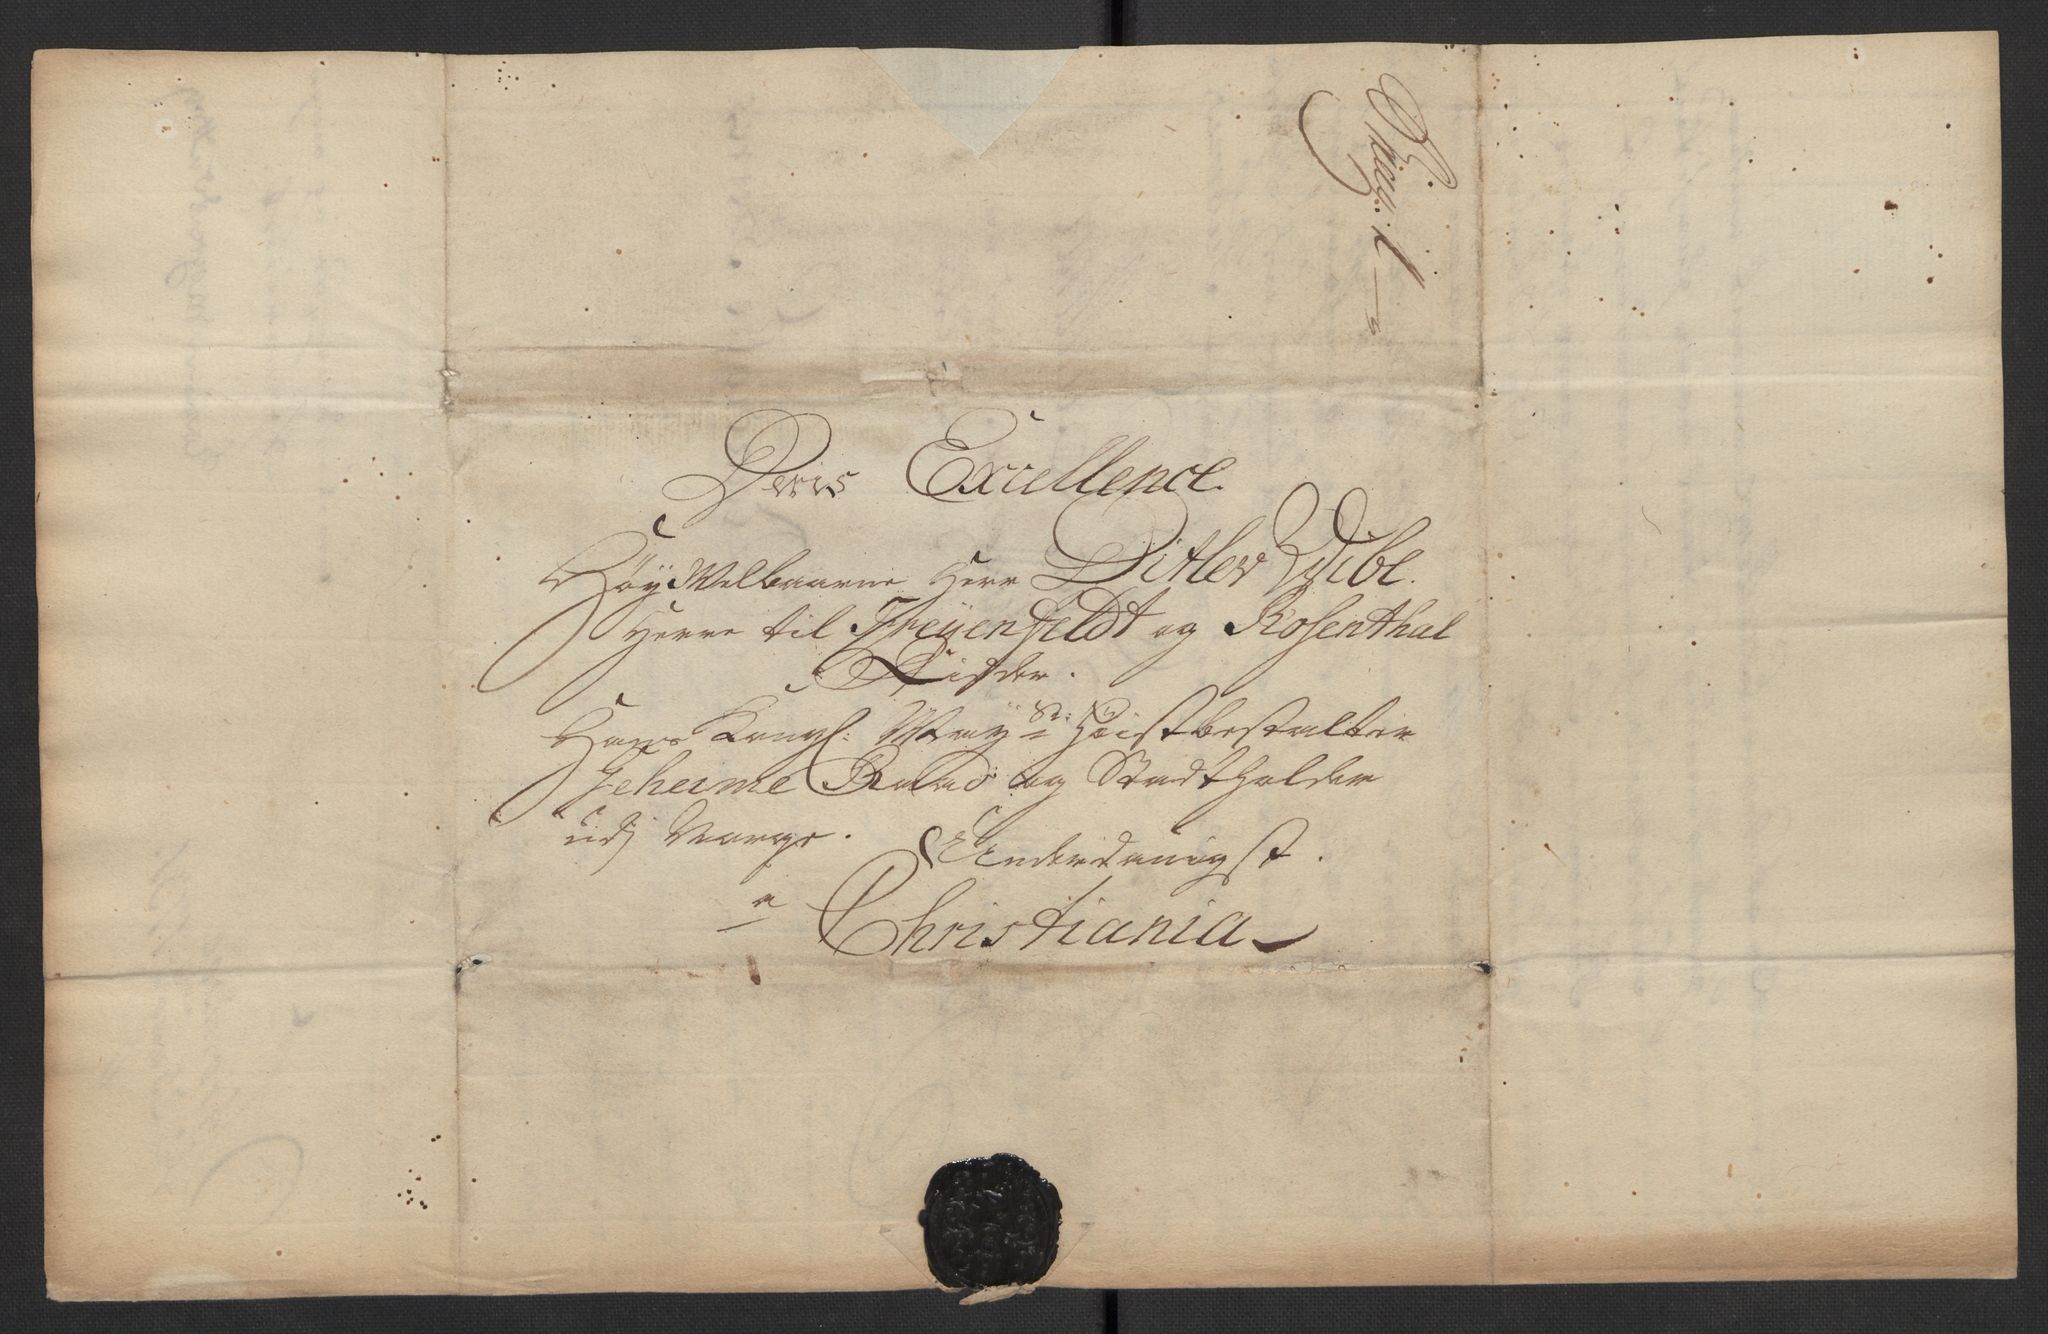 Deris Excellence
Höy Welbaarne Herr Ditlev Wibe.
Herre til Freyenfeldt og Rosenthal
Ridder.
Hans Kongl: May: st: Höistbestalter
Geheime Raad og Stadtholder
udj Norge.
Underdanigst.
a
Christiania